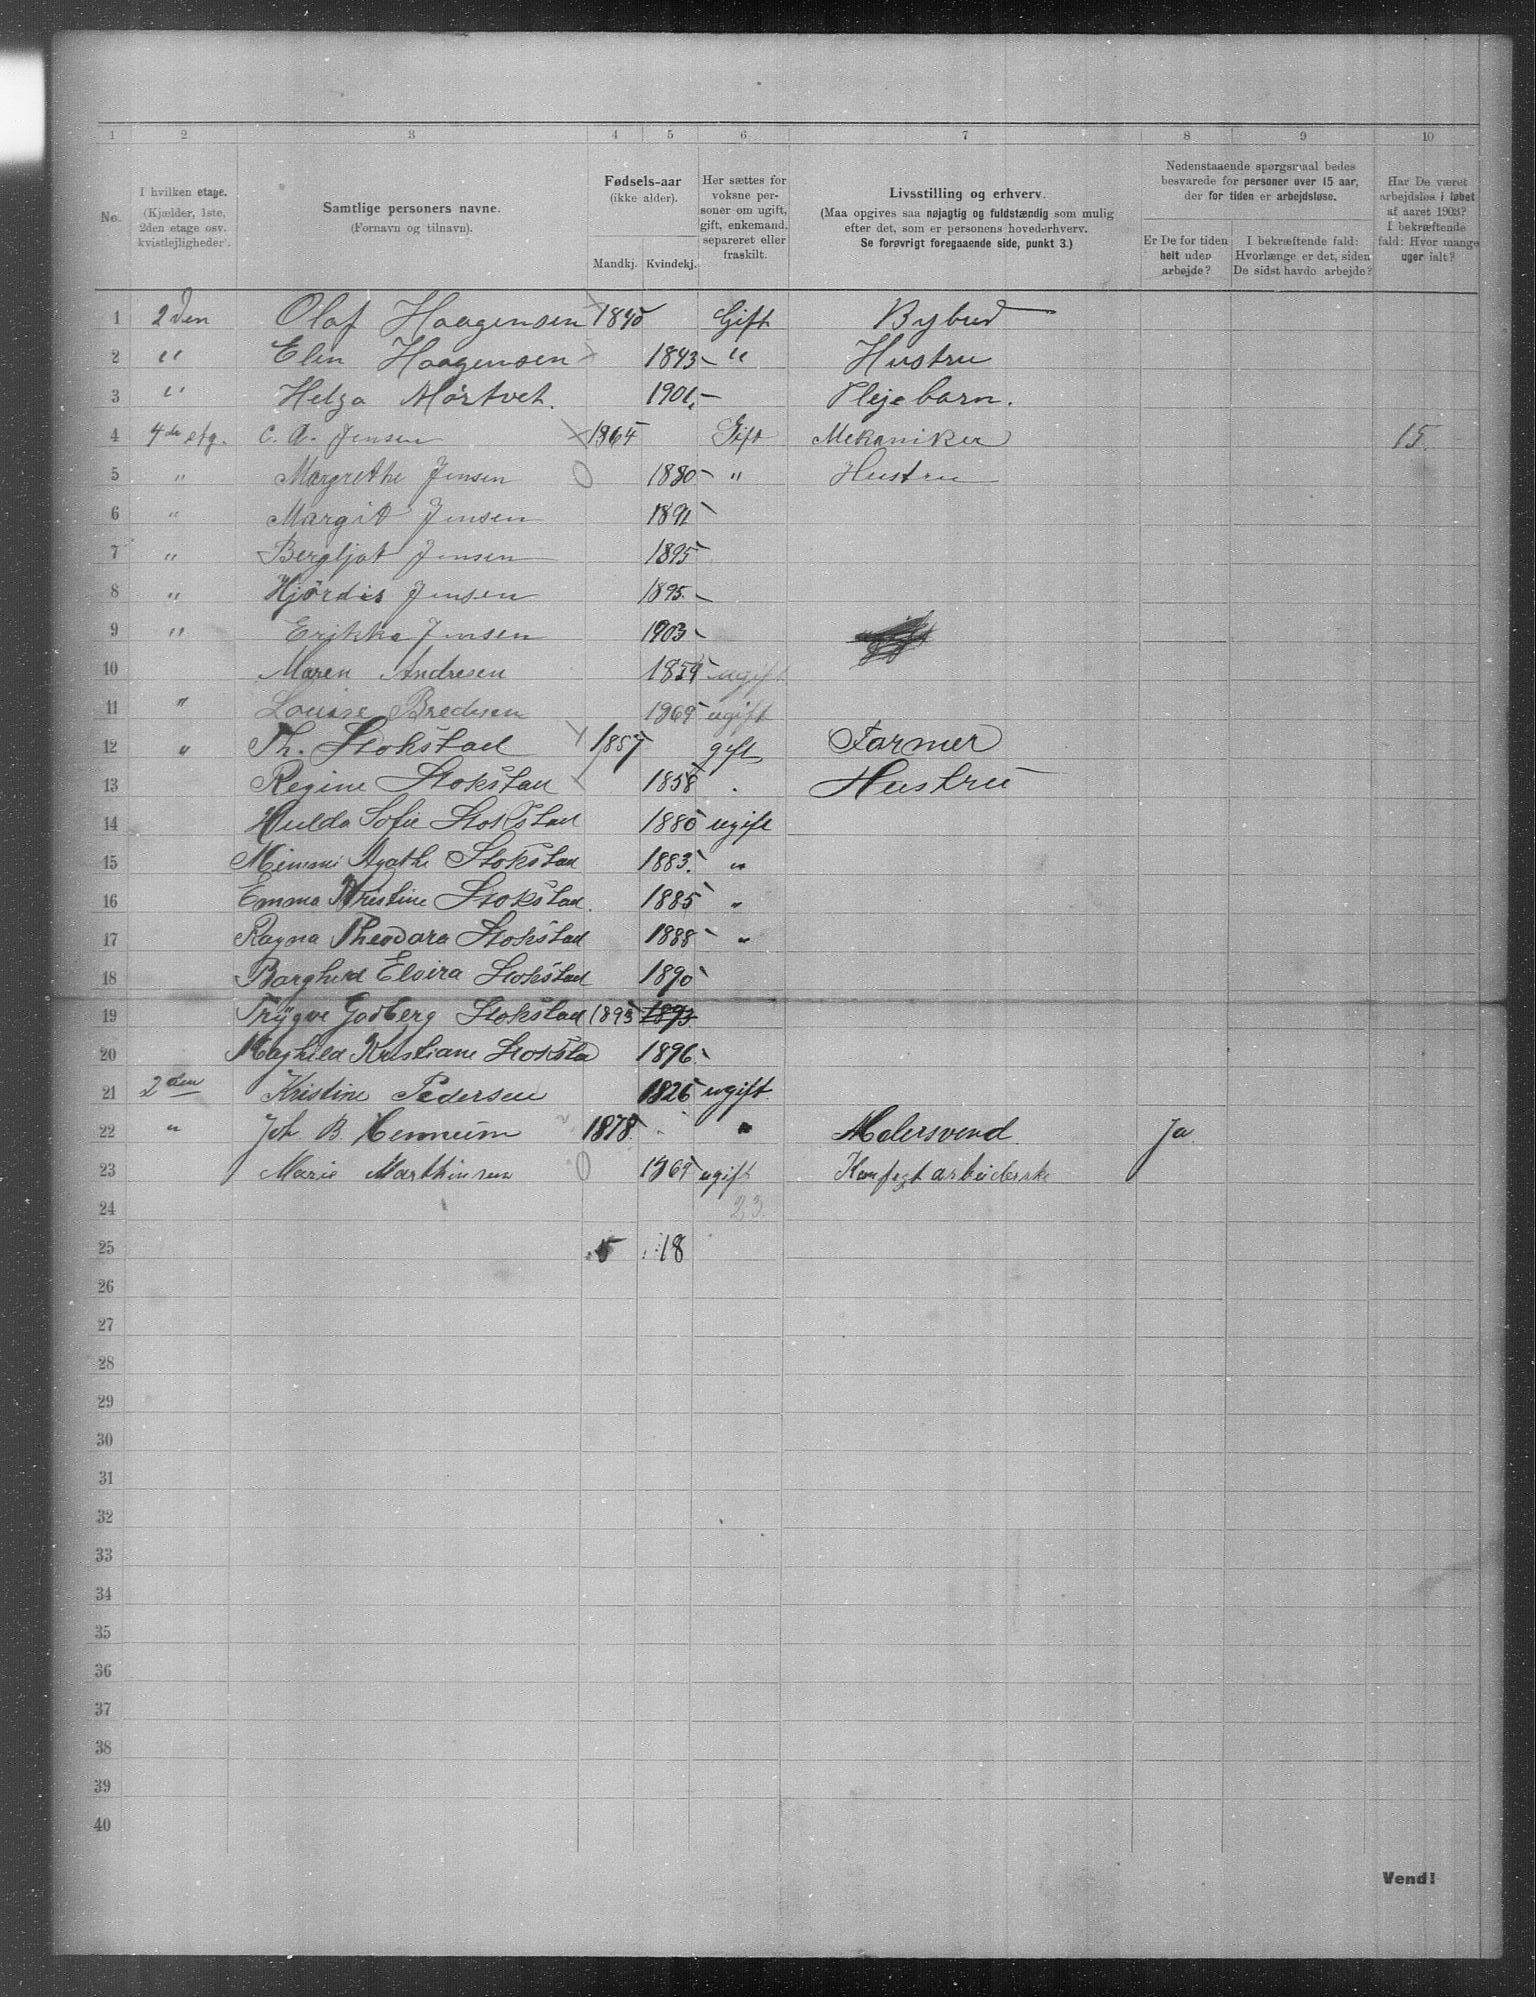 1 2 3 4 5 6 7 8 9 10
No.
I hvilken etage.
(Kjælder, 1ste,
2den etage osv.
kvistlejligheder).
Samtlige personers navne.
(Fornavn og tilnavn).
Fødsels-aar
(ikke alder).
Mandkj. Kvindekj.
Her sættes for
voksne per-
soner om ugift,
gift, enkemand,
separeret eller
fraskilt.
Livsstilling og erhverv.
(Maa opgives saa nøjagtig og fuldstændig som mulig
efter det, som er personens hovederhverv.
Se forøvrigt foregaaende side, punkt 3.)
Nedenstaaende spørgsmaal bedes
besvarede for personer over 15 aar,
der for tiden er arbejdsløse.
Er De for tiden
helt uden
arbejde?
I bekræftende fald:
Hvorlænge er det, siden
De sidst havde arbejde?
Har De været
arbejdsløs i løbet
af aaret 1903?
I bekræftende
fald: Hvor mange
uger ialt?
1 2den Olaf Haagensen 1840 Gift Bybud
2 " Elin Haagensen 1843 " Hustru
3 " Helga Mörtvet. 1901 Plejebarn.
4 4de etg. C. A. Jensen 1864 Gift Mekaniker 15.
5 " Margrethe Jensen 0 1880 " Hustru
6 " Margit Jensen 1891
7 " Bergljot Jensen 1895
8 " Hjördis Jensen 1895.
9 " Erikka Jensen 1903
10 Maren Andresen 1859 ugift
11 " Louise Bredesen 1865 ugift
12 " Th. Stokstad 1857 gift Farmer
13 Regine Stokstad 1858 " Hustru
14 Hulda Sofie Stokstad 1880 ugift
15 Mimmi Agathe Stokstad 1883. "
16 Emma Kristine Stokstad. 1885 "
17 Ragna Theodora Stokstad 1888 "
18 Borghild Elvira Stokstad 1890
19 Trygve Godberg Stokstad 1893 1893
20 Maghild Kristiane Stoksta 1896.
21 2den Kristine Pedersen 1826 ugift.
22 " Joh B. Hennum 1878. " Malersvend Ja
23 Marie Marthinsen 0 1865 ugift Konfegt arbeiderske
24 23.
25 5 18
26
27
28
29
30
31
32
33
34
35
36
37
38
39
40
Vend!